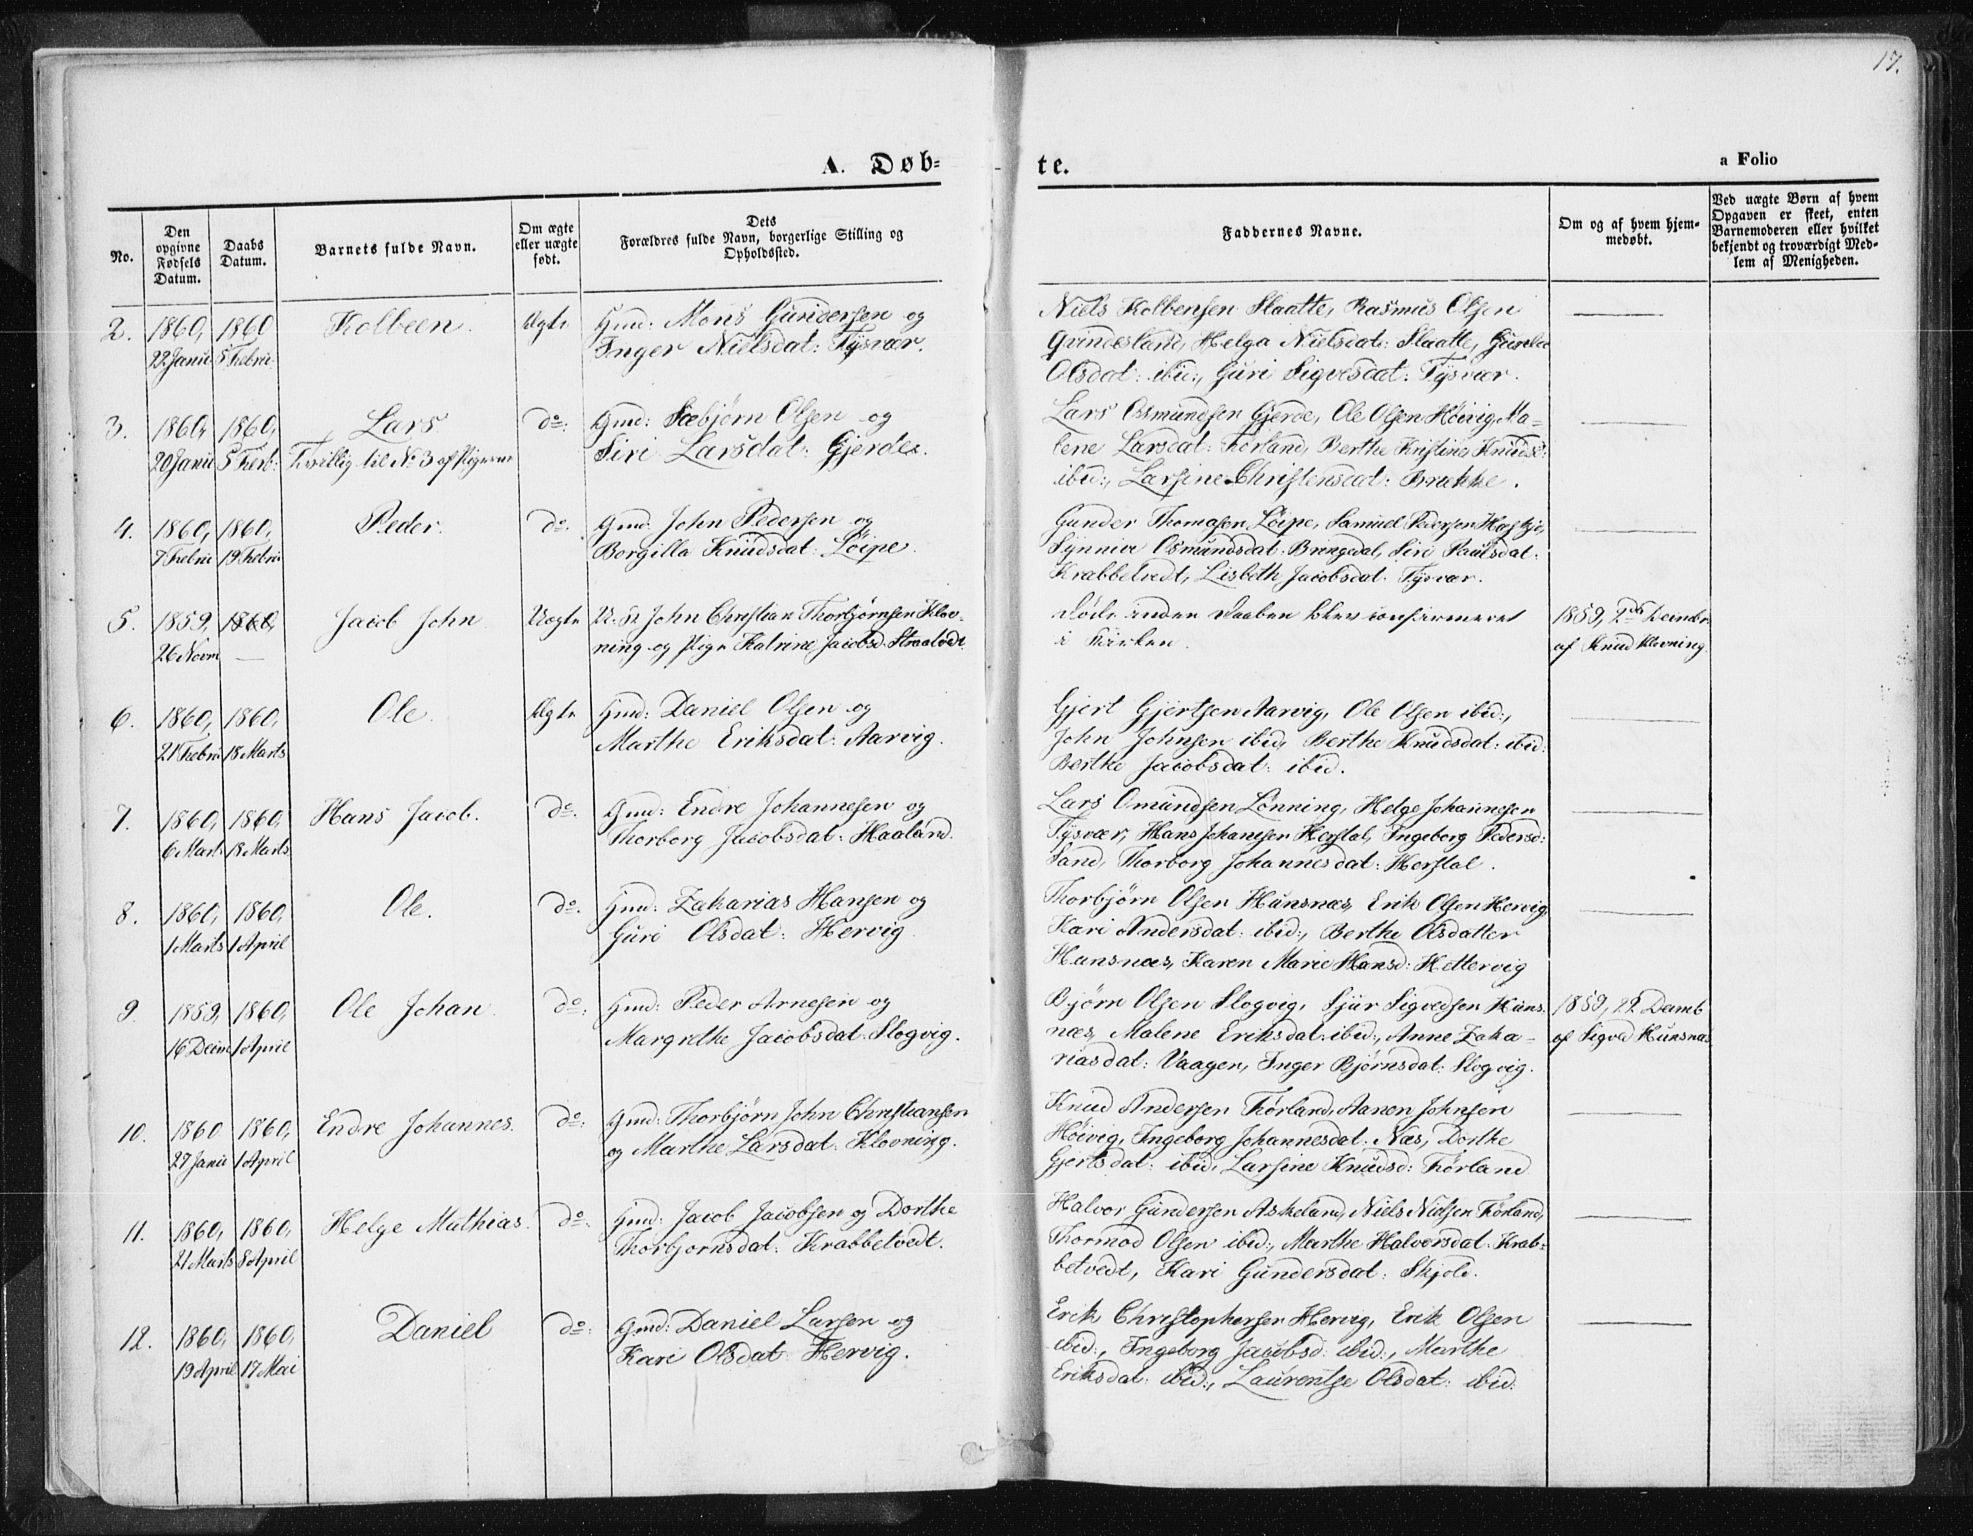 17.
A. Døb-
te.
a Folio
No.
Den opgivne Fødsels Datum.
Daabs Datum.
Barnets fulde Navn.
Om ægte eller uægte født.
Dets Forældres fulde Navn, borgerlige Stilling og Opholdssted.
Faddernes Navne.
Om og af hvem hjemmedøbt.
Ved uægte Børn af hvem Opgaven er skeet, enten Barnemoderen eller hvilket bekjendt og troværdigt Medlem af Menigheden.
2. 1860, 1860 Kolbeen. Ægte Gmd: Mons Gundersen og
22 Janu 5 Febru Inger Nielsdat: Tysvær.
Niels Kolbensen Slaatte, Rasmus Olsen
Grindesland, Helga Nielsdat: Slaatte,
Olsdat: ibid:, Guri Sigvesdat: Tysvær.
3. 1860, 1860, Lars do: Gmd: Sæbjørn Olsen og
20 Janu 5 Feb: Tvillig til No 3 af Pigerne Siri Larsdat: Gjerde.
Lars Osmundsen Gjerde, Ole Olsen Høivig, Ma-
lene Larsdat: Førland, Berthe Kristine Knudsd:
ibid:, Larsine Christensdat: Brække.
4. 1860, 1860, Peder. do. Gmd. John Pedersen og
7 Febru 19 Febru Borgilla Knudsdat: Løipe.
Gunder Thomasen Løipe, Samuel Pedersen
Synnive Osmundsdat: Bringedal, Siri Paulsdat:
Krabbetvedt, Lisbeth Jacobsdat: Tysvær.
5. 1859, 1860, Jacob John Uægte U. K. John Christian Thorbjørnsen Klov-
26 Novm — ning og Pige Katrine Jacobsd
Døde inden Daaben blev confirmeret
i Kirken.
1859, 2den Decmbr
af Knud Klovning.
6. 1860, 1860, Ole. Ægte Gmd: Daniel Olsen og
21 Febru 18 Marts Marthe Eriksdat: Aarvig.
Gjert Gjertsen Aarvig, Ole Olsen ibid:,
John Johnsen ibid, Berthe Knudsdat: ibid:
Berthe Jacobsdat: ibid.
7. 1860, 1860, Hans Jacob. do. Gmd: Endre Johannesen og
6 Marts 18 Marts Thorborg Jacobsdat: Haaland.
Lars Omundsen Lønning, Helge Johannesen
Tysvær, Hans Johannesen Hasstal, Ingeborg Pedersd:
Sand, Thorborg Johannesdat: Horstal.
8. 1860, 1860, Ole. do. Gmd: Zakarias Hansen og
1 Marts 1 April Guri Olsdat: Hervig.
Thorbjørn Olsen Hunsnæs, Erik Olsen Hervig,
Kari Andersdat: ibid:, Berthe Olsdatter
Hunsnæs, Karen Marie Hansd: Hettervig
9. 1859, 1860, Ole Johan. do: Gmd: Peder Arnesen og
16 Decm 1 April Margrethe Jacobsdat: Slogvig.
Bjørn Olsen Slogvig, Sjur Sigvedsen Huns-
næs, Malene Eriksdat: ibid:, Anne Zaka-
riasdat: Vaagen, Inger Bjørnsdat: Slogvig.
1859, 22 Decmb
af Sigved Hunsnæs
10. 1860 1860, Endre Johannes. do: Gmd: Thorbjørn John Christiansen
27 Janu 1 April og Marthe Larsdat: Klovning.
Knud Andersen Førland, Aanen Johnsen
Høivig, Ingeborg Johannesdat: Næs, Dorthe
Gjertsdat: ibid, Larsine Knudsd: Førland
11. 1860, 1860, Helge Mathias. do: Gmd: Jacob Jacobsen og Dorthe
21 Marts 8 April Thorbjørnsdat: Krabbetvedt.
Halvor Gundersen Askeland, Niels Nielsen Førland,
Thormod Olsen ibid:, Marthe Halvorsdat: Krab-
betvedt, Kari Gundersdat: Skjold.
12. 1860, 1860, Daniel do: Gmd: Daniel Larsen og
19 April 17 Mai Kari Olsdat: Hervig.
Erik Christophersen Hervig, Erik Olsen
ibid:, Ingeborg Jacobsd: ibid:, Marthe
Eriksdat: ibid:, Laurentse Olsdat: ibid: